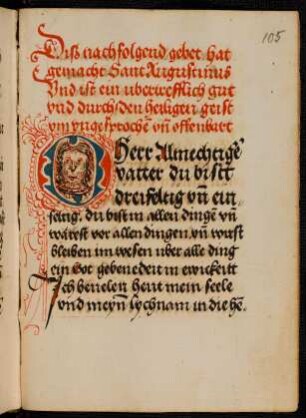 105
Diß nachfolgend gebet hat
gemacht Sant Augustinus
Vnd ist ein vbertrefflich gut
vnd durch den heiligen geist
im yngesprochē vn̄ offenbart
O Herr Almechtigē
vatter du bist
dreifeltig vn̄ ein
feltig. du bist in allen dingē vn̄
warest vor allen dingen. vn̄ wurst
bleiben im wesen vber alle ding
ein Got gebenedeit in ewickeitt
Ich beuelen heut mein seele
vnd meyn̄ lychnam in die hē.